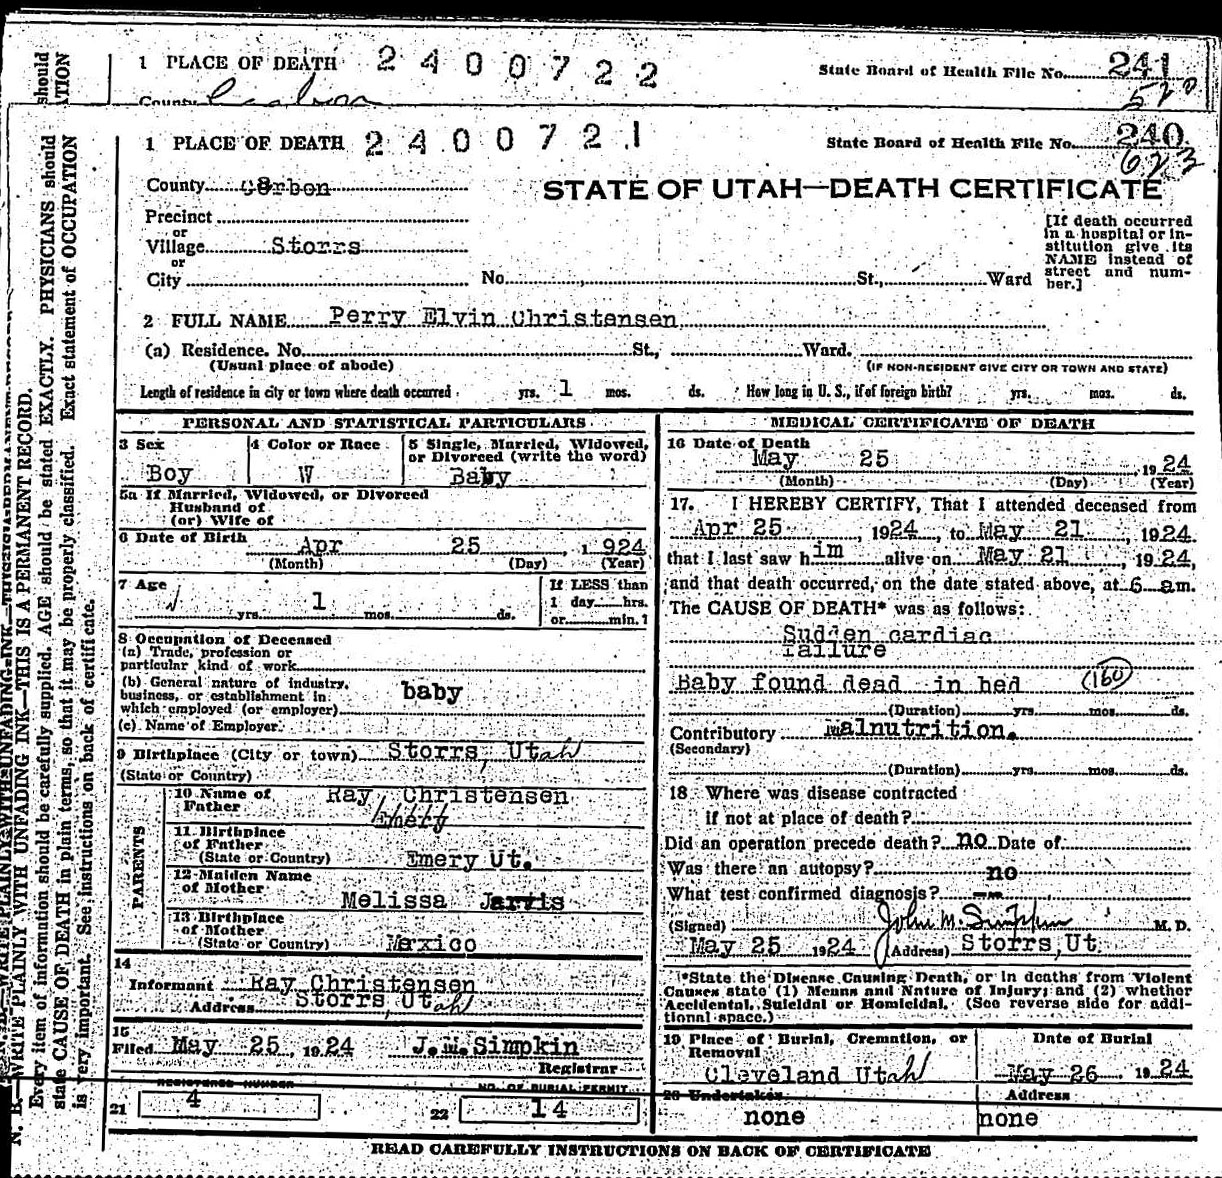 1 PLACE OF DEATH 2400722 State Board of Health File No. 241
County Carbon 520
1 PLACE OF DEATH 2400721 State Board of Health File No. 240
623
County Carbon
STATE OF UTAH—DEATH CERTIFICATE
Precinct
or
Village Storrs
or
City No. St., Ward
[If death occurred
in a hospital or in-
stitution give its
NAME instead of
street and num-
ber.]
2 FULL NAME Perry Elvin Christensen
(a) Residence. No. St., Ward.
(Usual place of abode) (IF NON-RESIDENT GIVE CITY OR TOWN AND STATE)
Length of residence in city or town where death occurred yrs. 1 mos. ds. How long in U. S., if of foreign birth? yrs. mos. ds.
PERSONAL AND STATISTICAL PARTICULARS
3 Sex 4 Color or Race 5 Single, Married, Widowed,
or Divorced (write the word)
Boy W Baby
5a If Married, Widowed, or Divorced
Husband of
(or) Wife of
6 Date of Birth Apr 25, 1924
(Month) (Day) (Year)
7 Age If LESS than
yrs. 1 mos. ds. 1 day hrs.
or min.?
8 Occupation of Deceased
(a) Trade, profession or
particular kind of work
(b) General nature of industry,
business, or establishment in
which employed (or employer) baby
(c) Name of Employer
9 Birthplace (City or town) Storrs, Utah
(State or Country)
PARENTS
10 Name of
Father Ray Christensen
Emery
11 Birthplace
of Father
(State or Country) Emery Ut.
12 Maiden Name
of Mother
Melissa Jarvis
13 Birthplace
of Mother
(State or Country) Mexico
14
Informant Ray Christensen
Address Storrs, Utah
15
Filed May 25, 1924 J.M. Simpkin
Registrar
REGISTERED NUMBER NO. OF BURIAL PERMIT
21 4 22 14
MEDICAL CERTIFICATE OF DEATH
16 Date of Death
May 25, 1924
(Month) (Day) (Year)
17. I HEREBY CERTIFY, That I attended deceased from
Apr 25, 1924, to May 21, 1924.
that I last saw him alive on May 21, 1924,
and that death occurred, on the date stated above, at 6 am.
The CAUSE OF DEATH* was as follows:
Sudden cardiac
failure
Baby found dead in bed (160)
(Duration) yrs. mos. ds.
Contributory Malnutrition.
(Secondary)
(Duration) yrs. mos. ds.
18 Where was disease contracted
if not at place of death?
Did an operation precede death? no Date of
Was there an autopsy? no
What test confirmed diagnosis? --
(Signed) John M. Simpkin M. D.
May 25 1924 (Address) Storrs, Ut.
*State the Disease Causing Death, or in deaths from Violent
Causes state (1) Means and Nature of Injury; and (2) whether
Accidental, Suicidal or Homicidal. (See reverse side for addi-
tional space.)
19 Place of Burial, Cremation, or
Removal
Cleveland Utah
Date of Burial
May 26 1924
20 Undertaker Address
none none
READ CAREFULLY INSTRUCTIONS ON BACK OF CERTIFICATE
N. B. WRITE PLAINLY WITH UNFADING INK—THIS IS A PERMANENT RECORD.
Every item of information should be carefully supplied. AGE should be stated EXACTLY. PHYSICIANS should
state CAUSE OF DEATH in plain terms, so that it may be properly classified. Exact statement of OCCUPATION
is very important. See instructions on back of certificate.
should
ATION